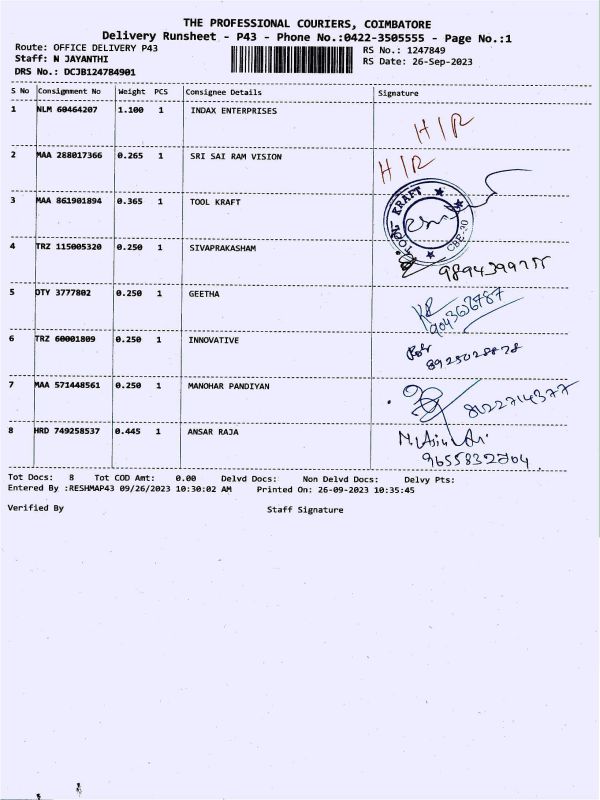 THE PROFESSIONAL COURIERS, COIMBATORE
Delivery Runsheet - P43 - Phone No.:0422-3505555 - Page No.:1
Route: OFFICE DELIVERY P43 RS No.: 1247849
Staff: N JAYANTHI RS Date: 26-Sep-2023
DRS No.: DCJB124784901
S No Consignment No Weight PCS Consignee Details Signature
1 NLM 60464207 1.100 1 INDAX ENTERPRISES H/R
2 MAA 288017366 0.265 1 SRI SAI RAM VISION H/R
3 MAA 861901894 0.365 1 TOOL KRAFT
TOOL KRAFT
4 TRZ 115005320 0.250 1 SIVAPRAKASHAM
5 DTY 3777802 0.250 1 GEETHA
6 TRZ 60001809 0.250 1 INNOVATIVE
7 MAA 571448561 0.250 1 MANOHAR PANDIYAN 8122714377
8 HRD 749258537 0.445 1 ANSAR RAJA
9655832704
Tot Docs: 8 Tot COD Amt: 0.00 Delvd Docs: Non Delvd Docs: Delvy Pts:
Entered By :RESHMAP43 09/26/2023 10:30:02 AM Printed On: 26-09-2023 10:35:45
Verified By Staff Signature